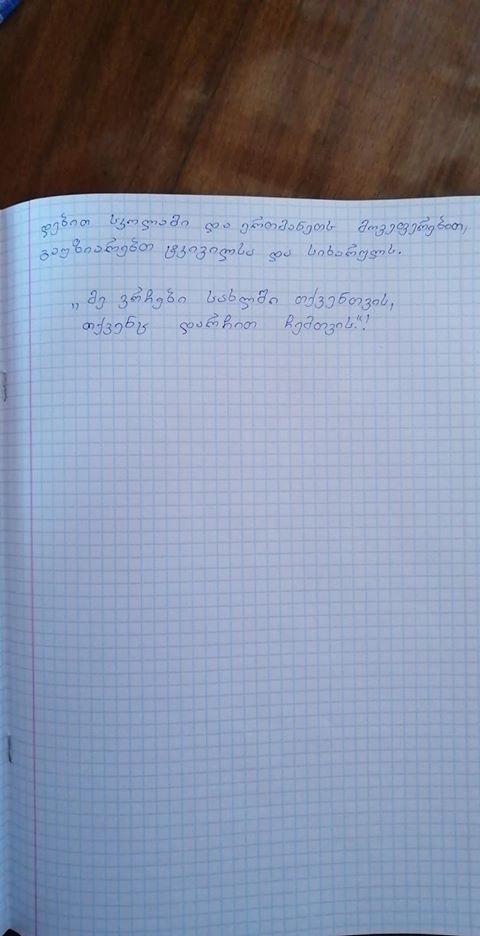 დებით სკოლაში და ერთმანეთს მოვეფერებით,
გავუზიარებთ ტკივილსა და სიხარულს.
„მე ვრჩები სახლში თქვენთვის,
თქვენც დარჩით ჩემთვის.“!